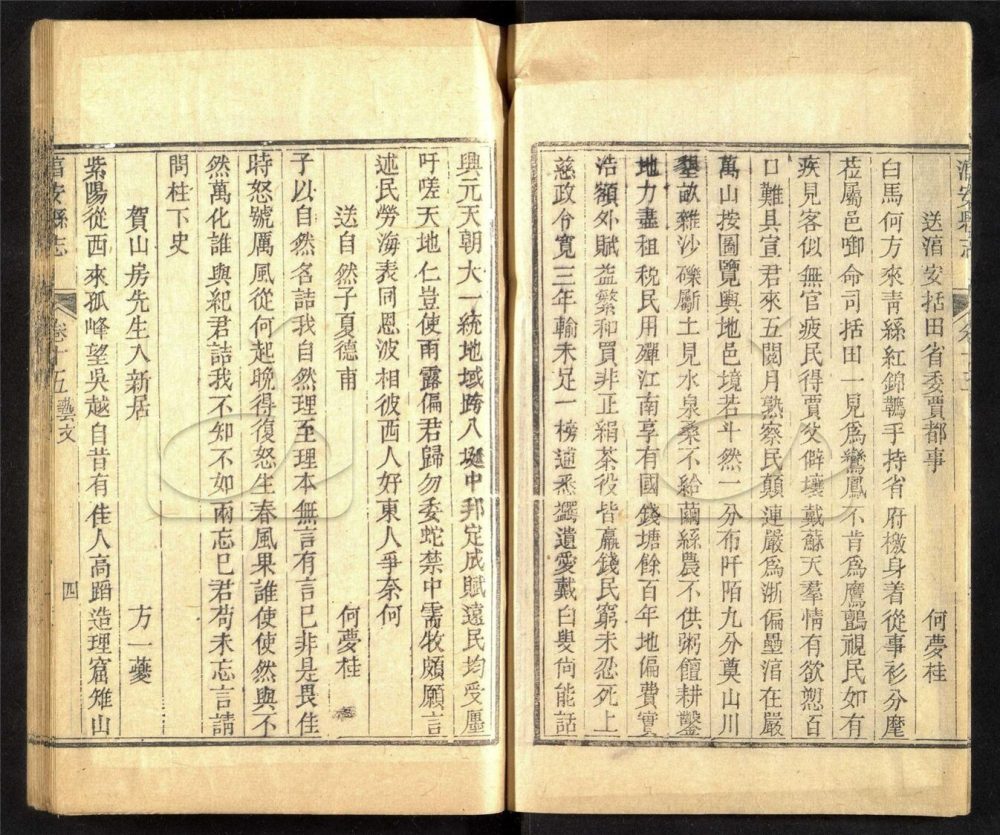 淳安縣志
送淯安括田省委賈都事
何夢桂
白馬何方來青絲紅錦韉手持省府檄身着從事衫分麾
莅屬邑啣命司括田一見爲鸞鳳不肯爲鷹鸇視民如有
疾見客似無官疲民得賈父僻壤戴蘇天羣情有欲愬百
口難具宣君來五閱月熟察民顛連嚴爲浙偏壘淯在嚴
萬山按圖覽輿地邑境若斗然一分布阡陌九分奠山川
墾畝雜沙礫斸土見水泉桑不給繭絲農不供粥饘耕鑿
地力盡租稅民用殫江南享有國錢塘餘百年地偏費實
浩額外賦益繁和買非正絹茶役皆羸錢民窮未忍死上
慈政令寬三年輸未足一榜逋悉蠲遺愛戴白叟尙能話
興元天朝大一統地域跨八埏中邦定成賦遠民均受廛
吁嗟天地仁豈使雨露偏君歸勿委蛇禁中需牧頗願言
述民勞海表同恩波相彼西人好東人爭奈何
送自然子夏德甫
何夢桂
子以自然名詰我自然理至理本無言有言已非是畏佳
時怒號厲風從何起晚得復怒生春風果誰使使然與不
然萬化誰與紀君詰我不知不如兩忘已君苟未忘言請
問柱下史
賀山房先生入新居
方一夔
紫陽從西來孤峰望吳越自昔有佳人高蹈造理窟雉山
淯安縣志
卷十五 藝文
四